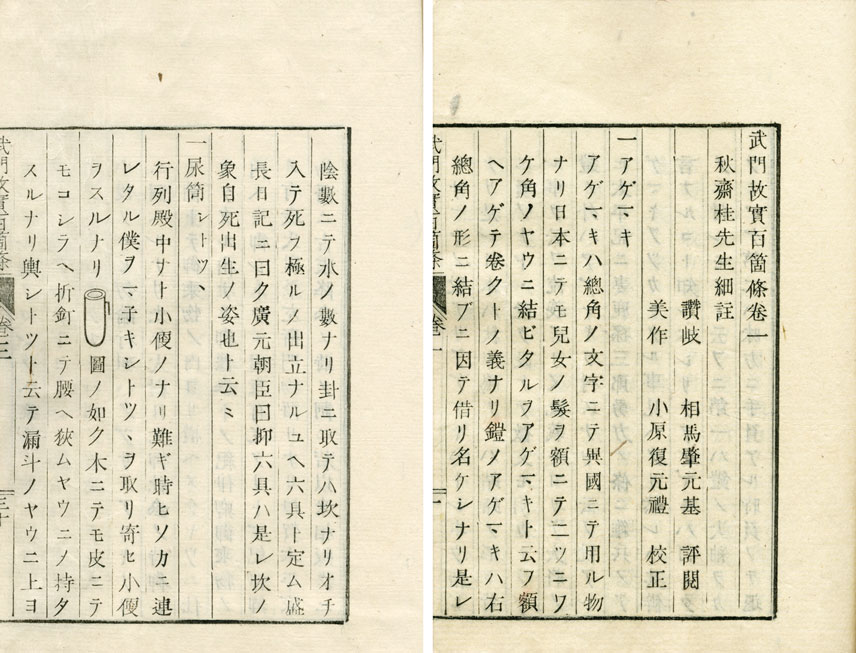 武門故實百箇條卷一
秋齋桂先生細註
讚岐 相馬肇元基 評閱
美作 小原復元禮 校正
一アゲマキ
アゲマキハ總角ノ文字ニテ異國ニテ用ル物
ナリ日本ニテモ兒女ノ髮ヲ額ニテ二ツニワ
ケ角ノヤウニ結ビタルヲアゲマキト云フ額
ヘアゲテ卷クトノ義ナリ鎧ノアゲマキハ右
總角ノ形ニ結ブニ因テ借リ名ケシナリ是レ
武門故實百箇條 卷一 一
陰數ニテ水ノ數ナリ卦ニ取テハ坎ナリオチ
入テ死ヲ極ルノ出立ナルユヘ六具ト定ム盛
長日記ニ曰ク廣元朝臣曰抑六具ハ是レ坎ノ
象自死出生ノ姿也ト云〻
一尿筒シトヾツヽ
行列殿中ナト小便ノナリ難ギ時ヒソカニ連
レタル僕ヲマ子キシトツヽヲ取リ寄セ小便
ヲスルナリ 圖ノ如ク木ニテモ皮ニテ
モコシラヘ折釘ニテ腰ヘ狹ムヤウニノ持タ
スルナリ輿シトツト云テ漏斗ノヤウニ上ヨ
武門故實百箇條 卷三 三十